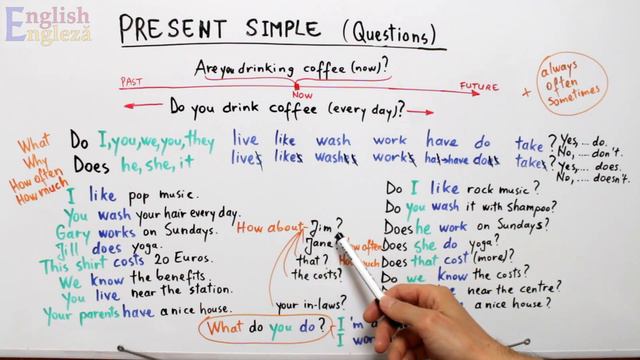 English
Engleză
PRESENT SIMPLE (Questions)
Are you drinking coffee (now)?
PAST
NOW
FUTURE
Do you drink coffee (every day)?
+ always
often
sometimes
What
Why
How often
How much
Do I, you, we, you, they live like wash work have do take?
Does he, she, it lives likes washes works has have does takes?
Yes, ... do.
No, .... don't.
Yes, ... does.
No, .... doesn't.
I like pop music.
You wash your hair every day.
Gary works on Sundays.
Jill does yoga.
This shirt costs 20 Euros.
We know the benefits.
You live near the station.
Your parents have a nice house.
How about - Jim?
Jane
that?
the costs?
your in-laws?
How often
How much
Do I like rock music?
Do you wash it with Shampoo?
Does he work on Sundays?
Does she do yoga?
Does that cost (more)?
Do we know the costs?
near the centre?
a nice house?
What do you do?
I 'm a
I